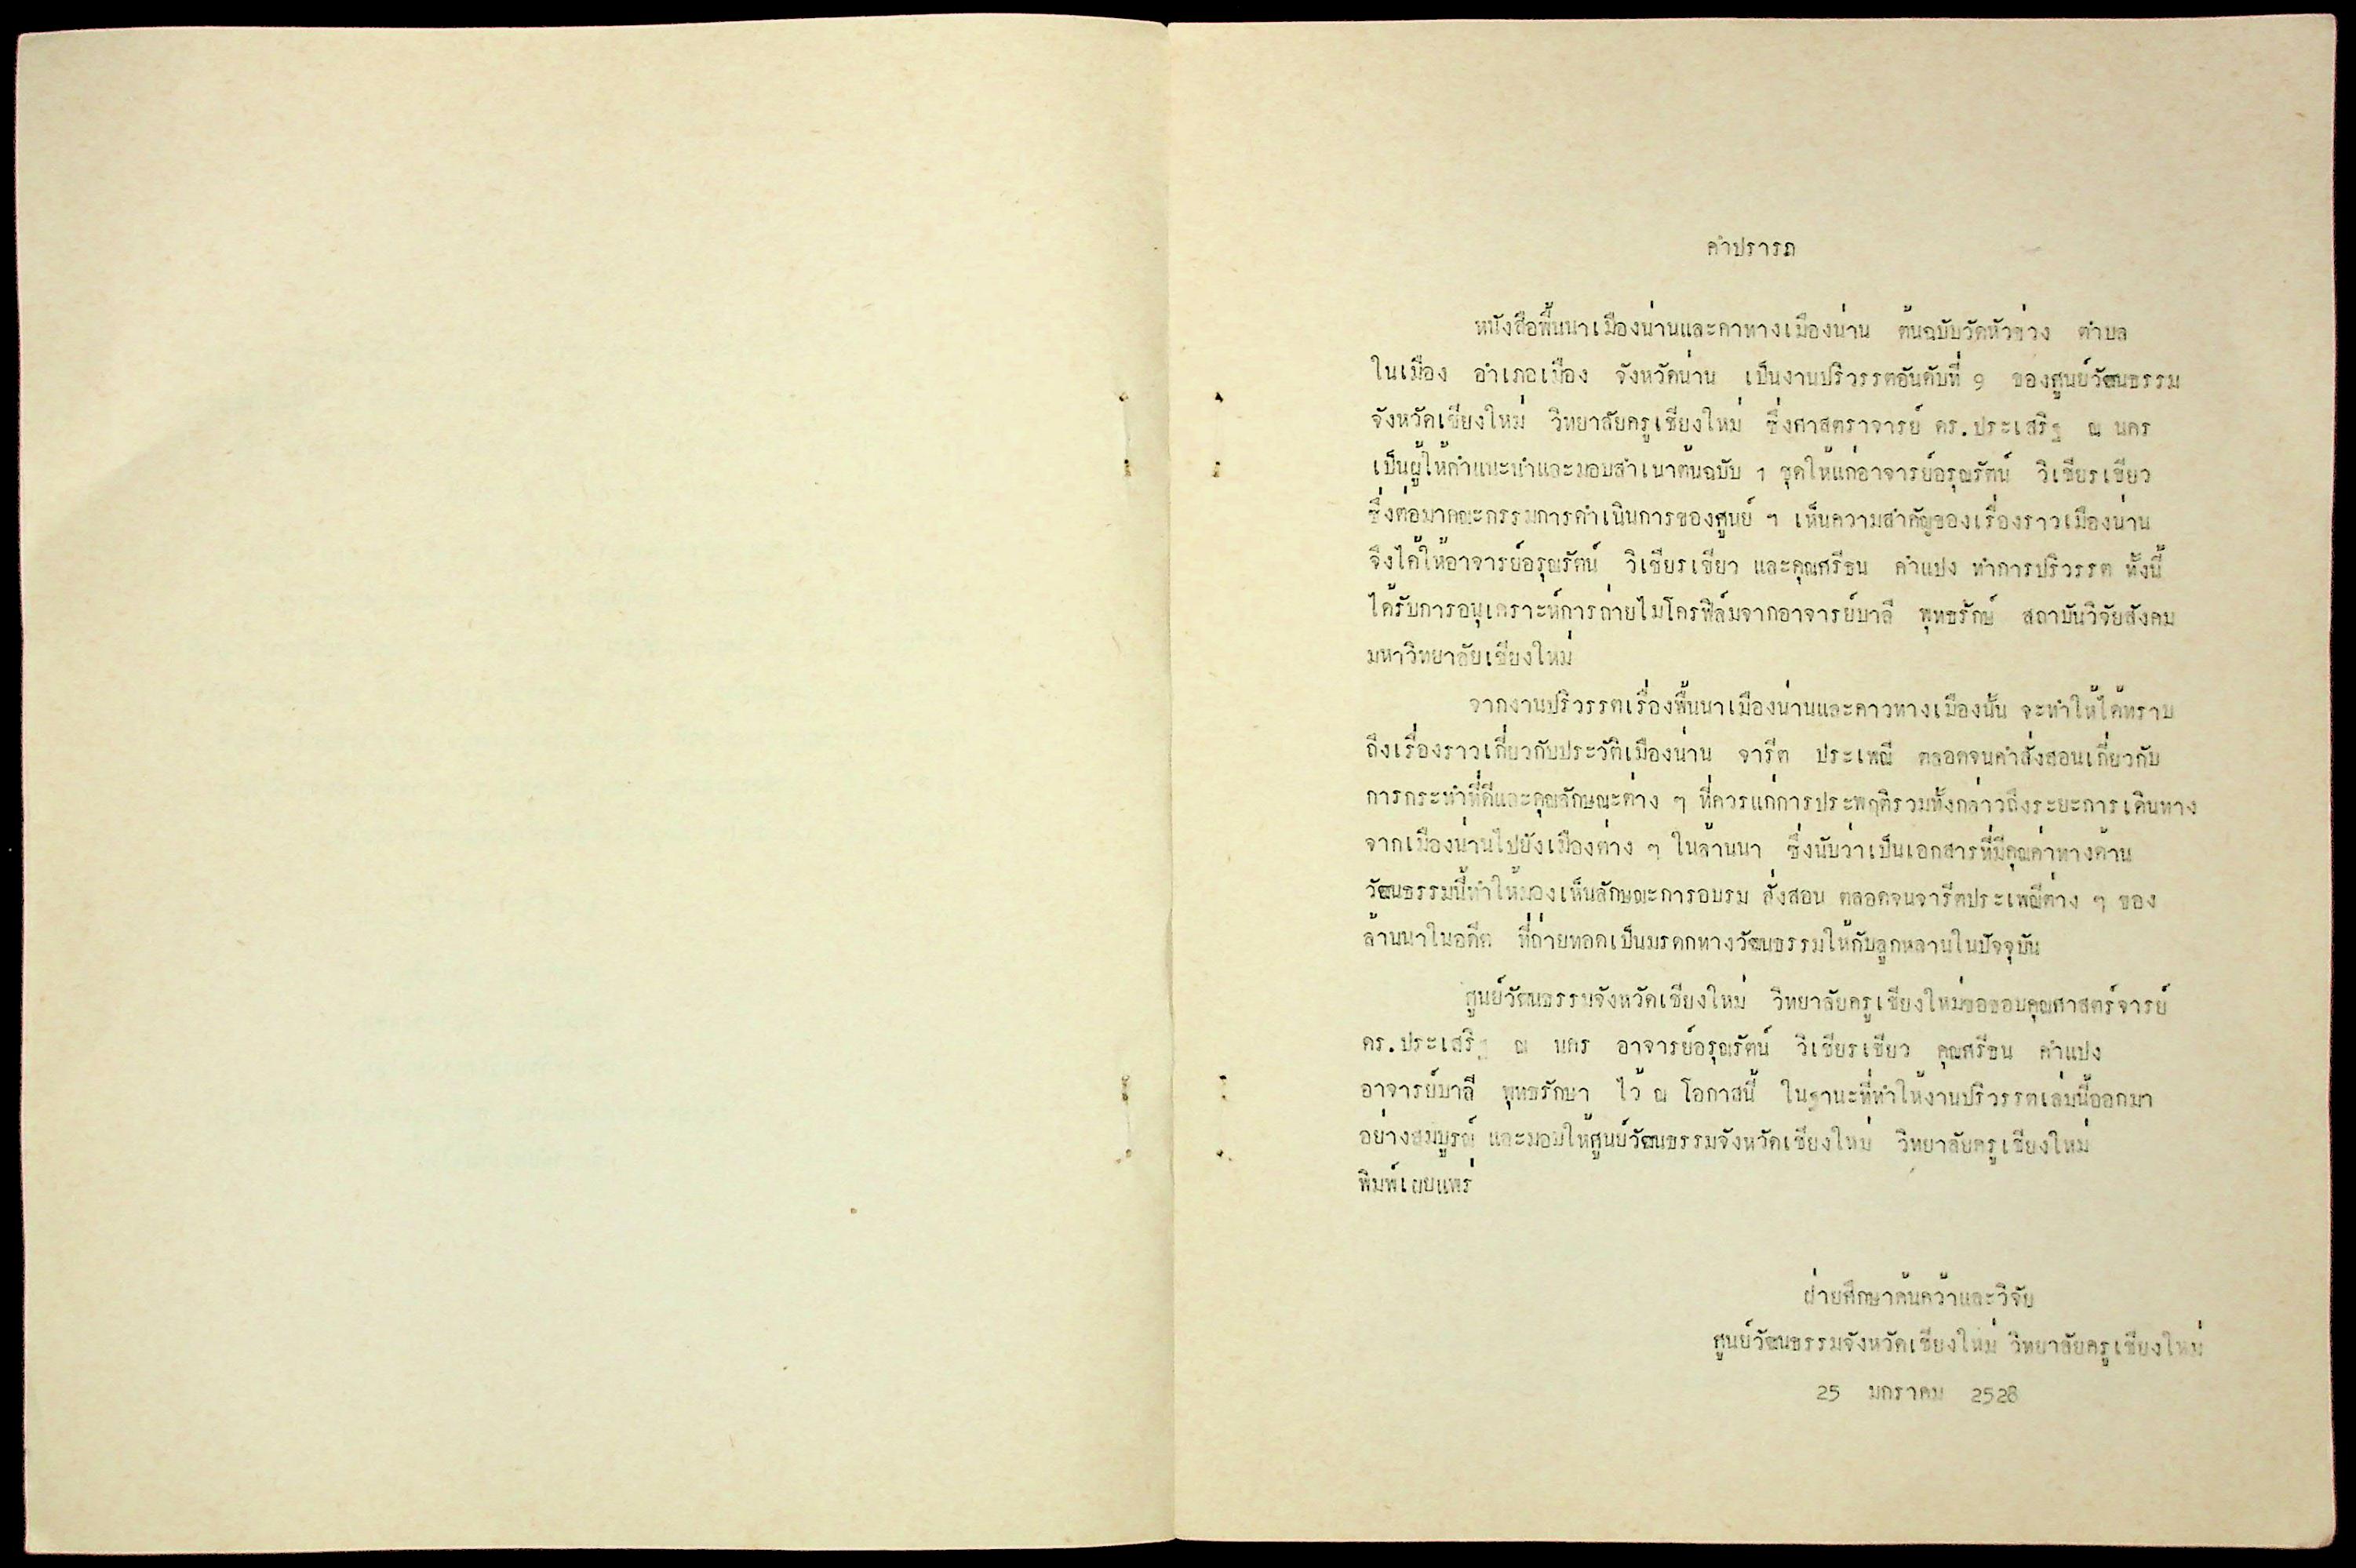 คำปรารภ
หนังสือพื้นนาเมืองน่านและคาทางเมืองน่าน ต้นฉบับวัดหัวข่วง ตำบล
ในเมือง อำเภอเมือง จังหวัดน่าน เป็นงานปริวรรตอันดับที่ 9 ของศูนย์วัฒนธรรม
จังหวัดเชียงใหม่ วิทยาลัยครูเชียงใหม่ ซึ่งศาสตราจารย์ ดร.ประเสริฐ ณ นคร
เป็นผู้ให้คำแนะนำและมอบสำเนาต้นฉบับ 1 ชุดให้แก่อาจารย์อรุณรัตน์ วิเชียรเขียว
ซึ่งต่อมาคณะกรรมการดำเนินการของศูนย์ ฯ เห็นความสำคัญของเรื่องราวเมืองน่าน
จึงได้ให้อาจารย์อรุณรัตน์ วิเชียรเขียว และคุณศรีธน คำแปง ทำการปริวรรต ทั้งนี้
ได้รับการอนุเคราะห์การถ่ายไมโครฟิล์มจากอาจารย์บาลี พุทธรักษ์ สถาบันวิจัยสังคม
มหาวิทยาลัยเชียงใหม่
จากงานปริวรรตเรื่องพื้นนาเมืองน่านและคาวทางเมืองนั้น จะทำให้ได้ทราบ
ถึงเรื่องราวเกี่ยวกับประวัติเมืองน่าน จารีต ประเพณี ตลอดจนคำสั่งสอนเกี่ยวกับ
การกระทำที่ดีและคุณลักษณะต่าง ๆ ที่ควรแก่การประพฤติรวมทั้งกล่าวถึงระยะการเดินทาง
จากเมืองน่านไปยังเมืองต่าง ๆ ในล้านนา ซึ่งนับว่าเป็นเอกสารที่มีคุณค่าทางด้าน
วัฒนธรรมนี้ทำให้มองเห็นลักษณะการอบรม สั่งสอน ตลอดจนจารีตประเพณีต่าง ๆ ของ
ล้านนาในอดีต ที่ถ่ายทอดเป็นมรดกทางวัฒนธรรมให้กับลูกหลานในปัจจุบัน
ศูนย์วัฒนธรรมจังหวัดเชียงใหม่ วิทยาลัยครูเชียงใหม่ขอขอบคุณศาสตร์จารย์
ดร.ประเสริฐ ณ นคร อาจารย์อรุณรัตน์ วิเชียรเขียว คุณศรีธน คำแปง
อาจารย์บาลี พุทธรักษา ไว้ ณ โอกาสนี้ ในฐานะที่ทำให้งานปริวรรตเล่มนี้ออกมา
อย่างสมบูรณ์ และมอบให้ศูนย์วัฒนธรรมจังหวัดเชียงใหม่ วิทยาลัยครูเชียงใหม่
พิมพ์เผยแพร่
ฝ่ายศึกษาค้นคว้าและวิจัย
ศูนย์วัฒนธรรมจังหวัดเชียงใหม่ วิทยาลัยครูเชียงใหม่
25 มกราคม 2528